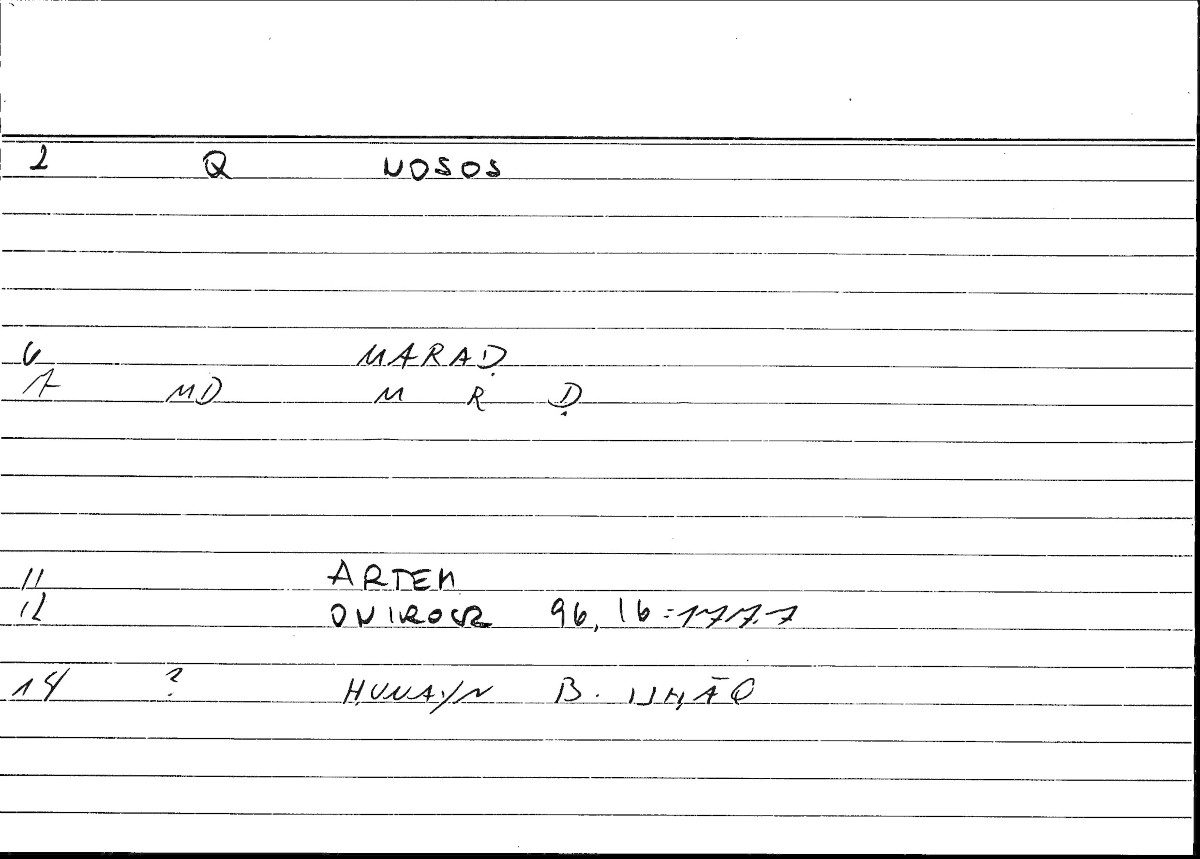 2 Q NOSOS
6 MARAḌ
7 MD M R Ḍ
11 ARTEM
12 ONIROCR 96, 16 = 177.7
14 ? ḤUNAYN B. ISḤĀQ